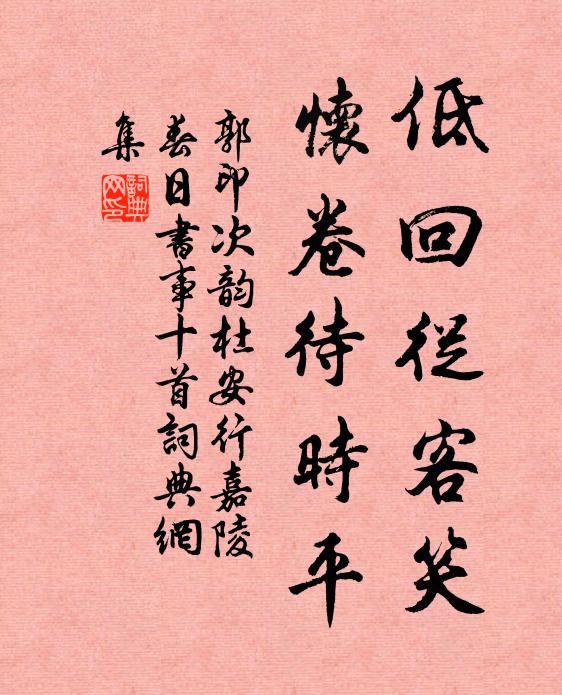 低回從客笑
懷卷待時平
郭印次韵杜安行嘉陵
春日書事十首詞典網
集
詞典
网印